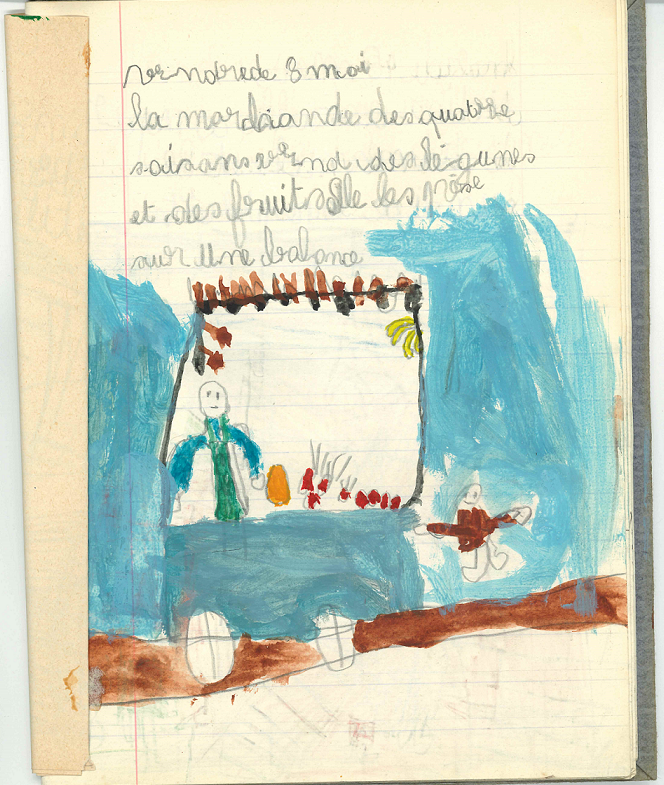 vendrede 8 mai
la marchande des quatre
saisans vend des légunes
et des fruits elle les pèse
sur une balance